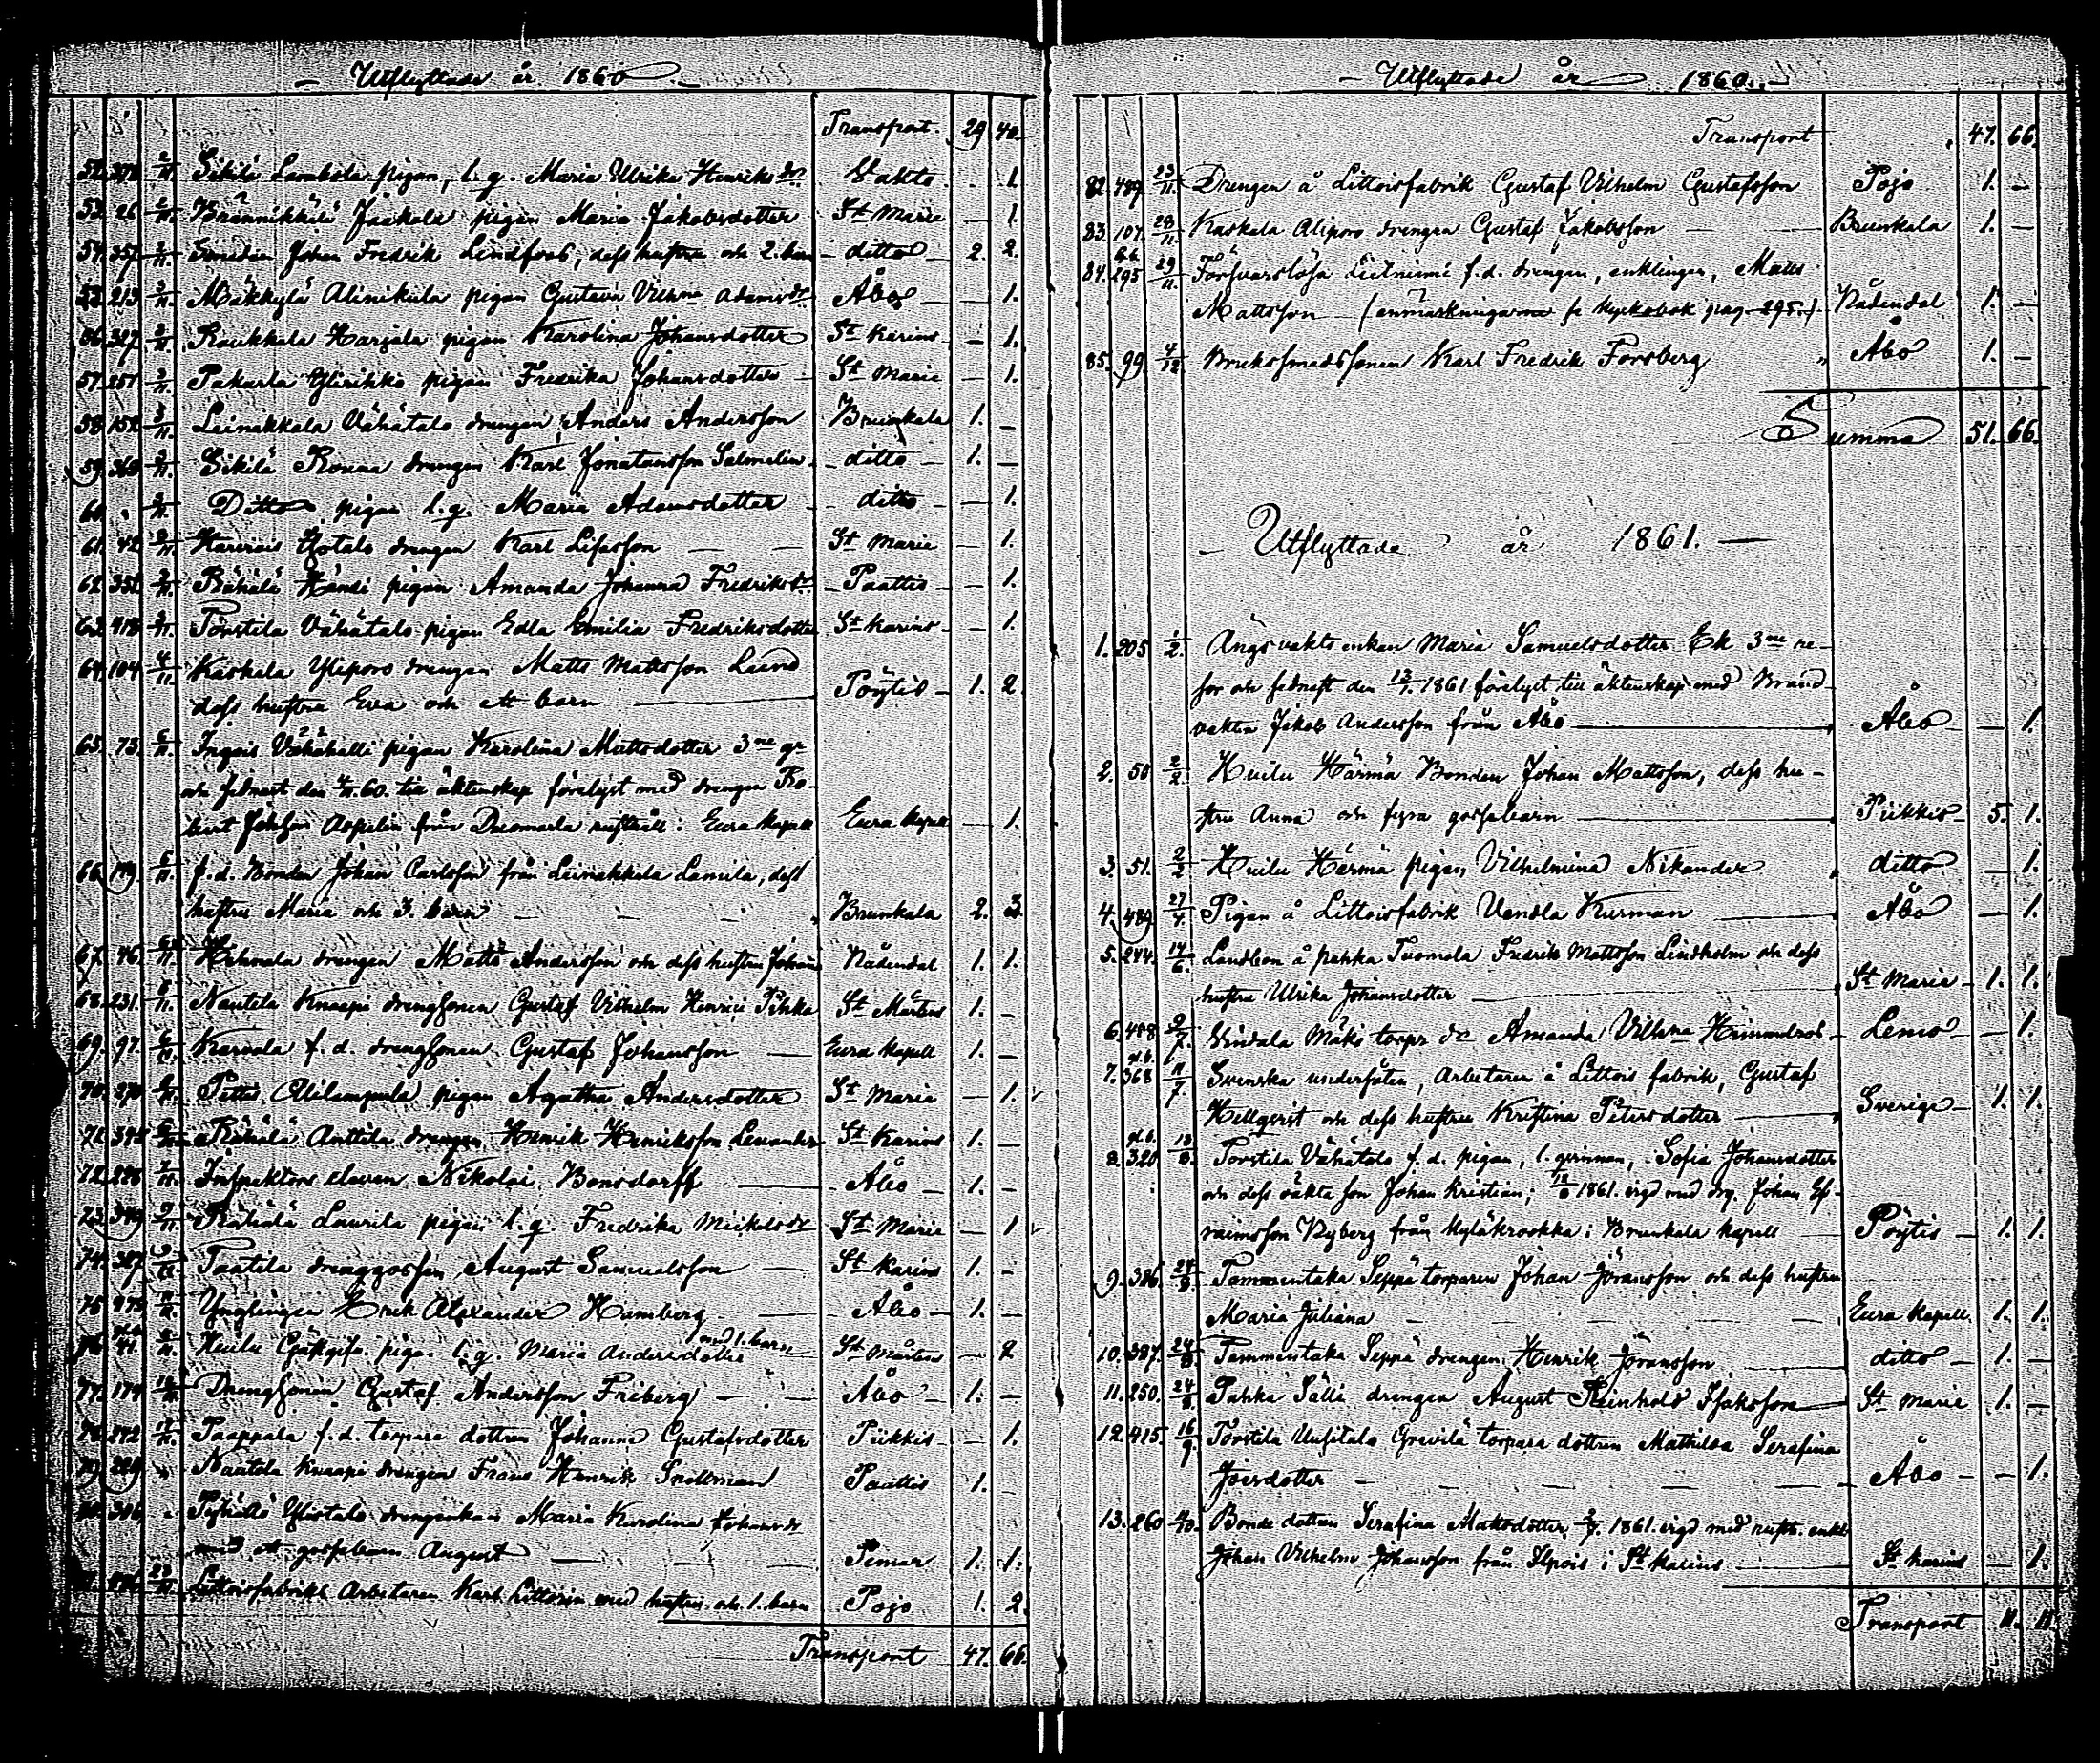 Utflyttade år 1860.
Transport. 29 40.
52. 378 2/11. Sikilä Lambola pigan, l. q. Maria Ulrika Henriksdr Vahto 1.
53. 26 2/11. Jaakola pigan Maria Jakobsdotter St Marie — 1.
54. 357 2/11. Smeden Johan Fredrik Lindfors, dess hustru och 2. barn — ditto — 2. 2.
213 2/11. Mäkkylä Alinikula pigan Gustava Vilhna Adamsdr Åbo — 1.
56. 327 2/11. Raukkala Harjala pigan Karolina Johansdotter St Karins — 1.
57. 251 2/11. Pakurla Ylisikkö pigan Fredrika Johansdotter St Marie — 1.
58. 152 3/11. Leinakkala Vähätalo drengen Anders Andersson Brunkala 1. —
59. 368 3/11. Sikilä Rouna drengen Karl Jonatansson Salmelin — ditto — 1. —
60. 3/11. Ditto pigan l. q. Maria Adamsdotter — ditto — 1.
61. 42 3/11. drengen Karl St Marie — 1.
62. 352 3/11. Rähälä Händi pigan Amanda Johanna Fredriksdr — Paattis — 1.
63. 418 3/11. Torstila Vähätalo pigan Edla Emilia Fredriksdotter St Karins — 1.
64. 104 4/11. Kaskala Yliporo drengen Matts Mattsson Lund
dess hustru Eva och ett barn Pöytis — 1. 2.
65. 73. 5/11. Ingois Vähähalli pigan Karolina Mattsdotter 3ne gr
och sednast den 4/11. 60. till äktenskap förelyst med drengen Ro-
bert Johsson Aspelin från rusthåll i Eura kapell Eura kapell — 1.
66. 149. 5/11. f. d. Bonden Johan Carlsson från Leinakkala Lamila, dess
hustru Maria och 3. barn Brunkala 2. 3
67. 46. 5/11. drengen Matts Andersson och dess hustru Johana Nådendal 1. 1.
68. 231. 5/11. Nautela Knaapi drengsonen Gustaf Vilhelm Henrici Pihka St Mårtens 1. —
69. 97. 6/11. Karvala f. d. drengsonen Gustaf Johansson — Eura kapell 1. —
70. 270 6/11. Pettis Alilempula pigan Agatha Andersdotter St Maria — 1.
71. 345 6/11. Rähälä Anttila drengen Henrik Henriksson Levander St Karins 1. —
72. 228 7/11. Inspektors eleven Nikolai Bonsdorff — Åbo — 1. —
73. 349 9/11. Rähälä Laurila pigan l. q. Fredrika Mickelsdr St Marie — 1
74. 387 9/11. Taatila drenggossen August Samuelsson — St Karins 1. —
75. 475 11/11. Ynglingen Erik Alexander Hamberg — Åbo — 1. —
76. 41. Huilu Gästgifv. pigan l. q. Maria Andersdotter med 1. barn St Mårtens — 2
77. 174 Drengsonen Gustaf Andersson Friberg — Åbo — 1. —
78. 242 Paappala f. d. torpare dottren Johanna Gustafsdotter Piikkis — 1.
79. 229 Nautela Knaapi drengen Frans Henrik Snellman Paattis 1. —
80. 306 Pöyhälö Ylistalo drengenkan Maria Karolina Johansdr
med ett gossebarn August Pemar 1. 1.
23/11 Littoisfabriks Arbetaren Karl Littorin med hustru och 1. barn Pojo 1. 2.
Transport 47. 66.
Utflyttade år 1860.
Transport 47. 66.
82. 489 23/11. Drengen å Littoisfabrik Gustaf Vilhelm Gustafsson Pojo 1. —
83. 107. 28/11. Kaskala Aliporo drengen Gustaf Jakobsson — Brunkala 1. —
84. 295 29/11. Försvarslösa Lieiniemi f. d. drengen, enklingen, Matts
Mattsson (anmärkningarna se kyrkobok pag. 295.) Nådendal 1. —
85. 99. 4/12. Brukssmedssonen Karl Fredrik Forsberg Åbo 1. —
Summa 51. 66.
Utflyttade år 1861.
1. 205 1/2. Ängsvakts enkan Maria Samuelsdotter Ek 3ne re-
sor och sednast den 13/1. 1861 förelyst till äktenskap med Brand
vakten Jakob Andersson från Åbo Åbo — 1.
2. 50 2/2 Huilu Härmä Bonden Johan Mattsson, dess hu-
stru Anna och fyra gossebarn Piikkis 5. 1.
3. 51. 2/2 Huilu Härmä pigan Vilhelmina Nikander ditto — 1.
4. 489 27/4. Pigan å Littoisfabrik Vendla Kurman Åbo — 1.
5. 244. 14/6. Landbon å pahka Tuomola Fredrik Mattsson Lindholm och dess
hustru Ulrika Johansdotter St Marie 1. 1.
6. 488 9/7. Vindala Mäki torpr dr Amanda Vilhna Lemo — 1.
7. 368 11/7 Svenska undersåten, Arbetaren å Littois fabrik, Gustaf
Hellqvist och dess hustru Kristina Petersdotter Sverige — 1. 1.
8. 320 18/8. Torstila Vähätalo f. d. pigan, l. qvinnan, Sofia Johansdotter
och dess oäkta son Johan Kristian; 18/8 1861. vigd med drg. Johan Ef-
raimsson Nyberg från Kyläkrookka i Brunkala kapell Pöytis — 1. 1.
9. 386. 24/8. Tammentaka Seppä torparen Johan Jöransson och dess hustru
Maria Juliana Eura Kapell. 1. 1.
10. 387. 24/8. Tammentaka Seppä drengen Henrik Jöransson ditto — 1. —
11. 250. 24/8. Pahka Sälli drengen August Reinhold Isaksson St Marie 1. —
12. 415. 16/9. Torstila Uusitalo Grevilä torpare dottren Mathilda Serafina
Joirsdotter Åbo — 1.
13. 260 Bonde dottren Serafina Mattsdotter, 1861. vigd med rusth. enkl
Johan Vilhelm Johansson från Ilpois i St Karins St Karins — 1.
Transport 11. 11.